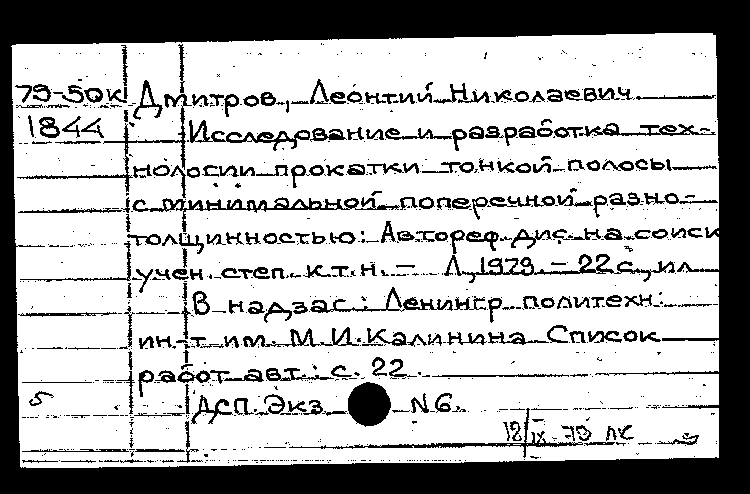 79-50к Дмитров, Леонтий Николаевич.
1844 Исследование и разработка тех-
нологии прокатки тонкой полосы
с минимальной поперечной разно-
толщинностью: Автореф. дис. на соиск
учен. степ. к.т.н. – Л, 1979. – 22 с., ил
В надзас.: Ленингр. политехн.
ин-т им. М.И.Калинина Список
работ авт.: с. 22.
5 ДСП. Экз N6.
18/IX-79 ЛК